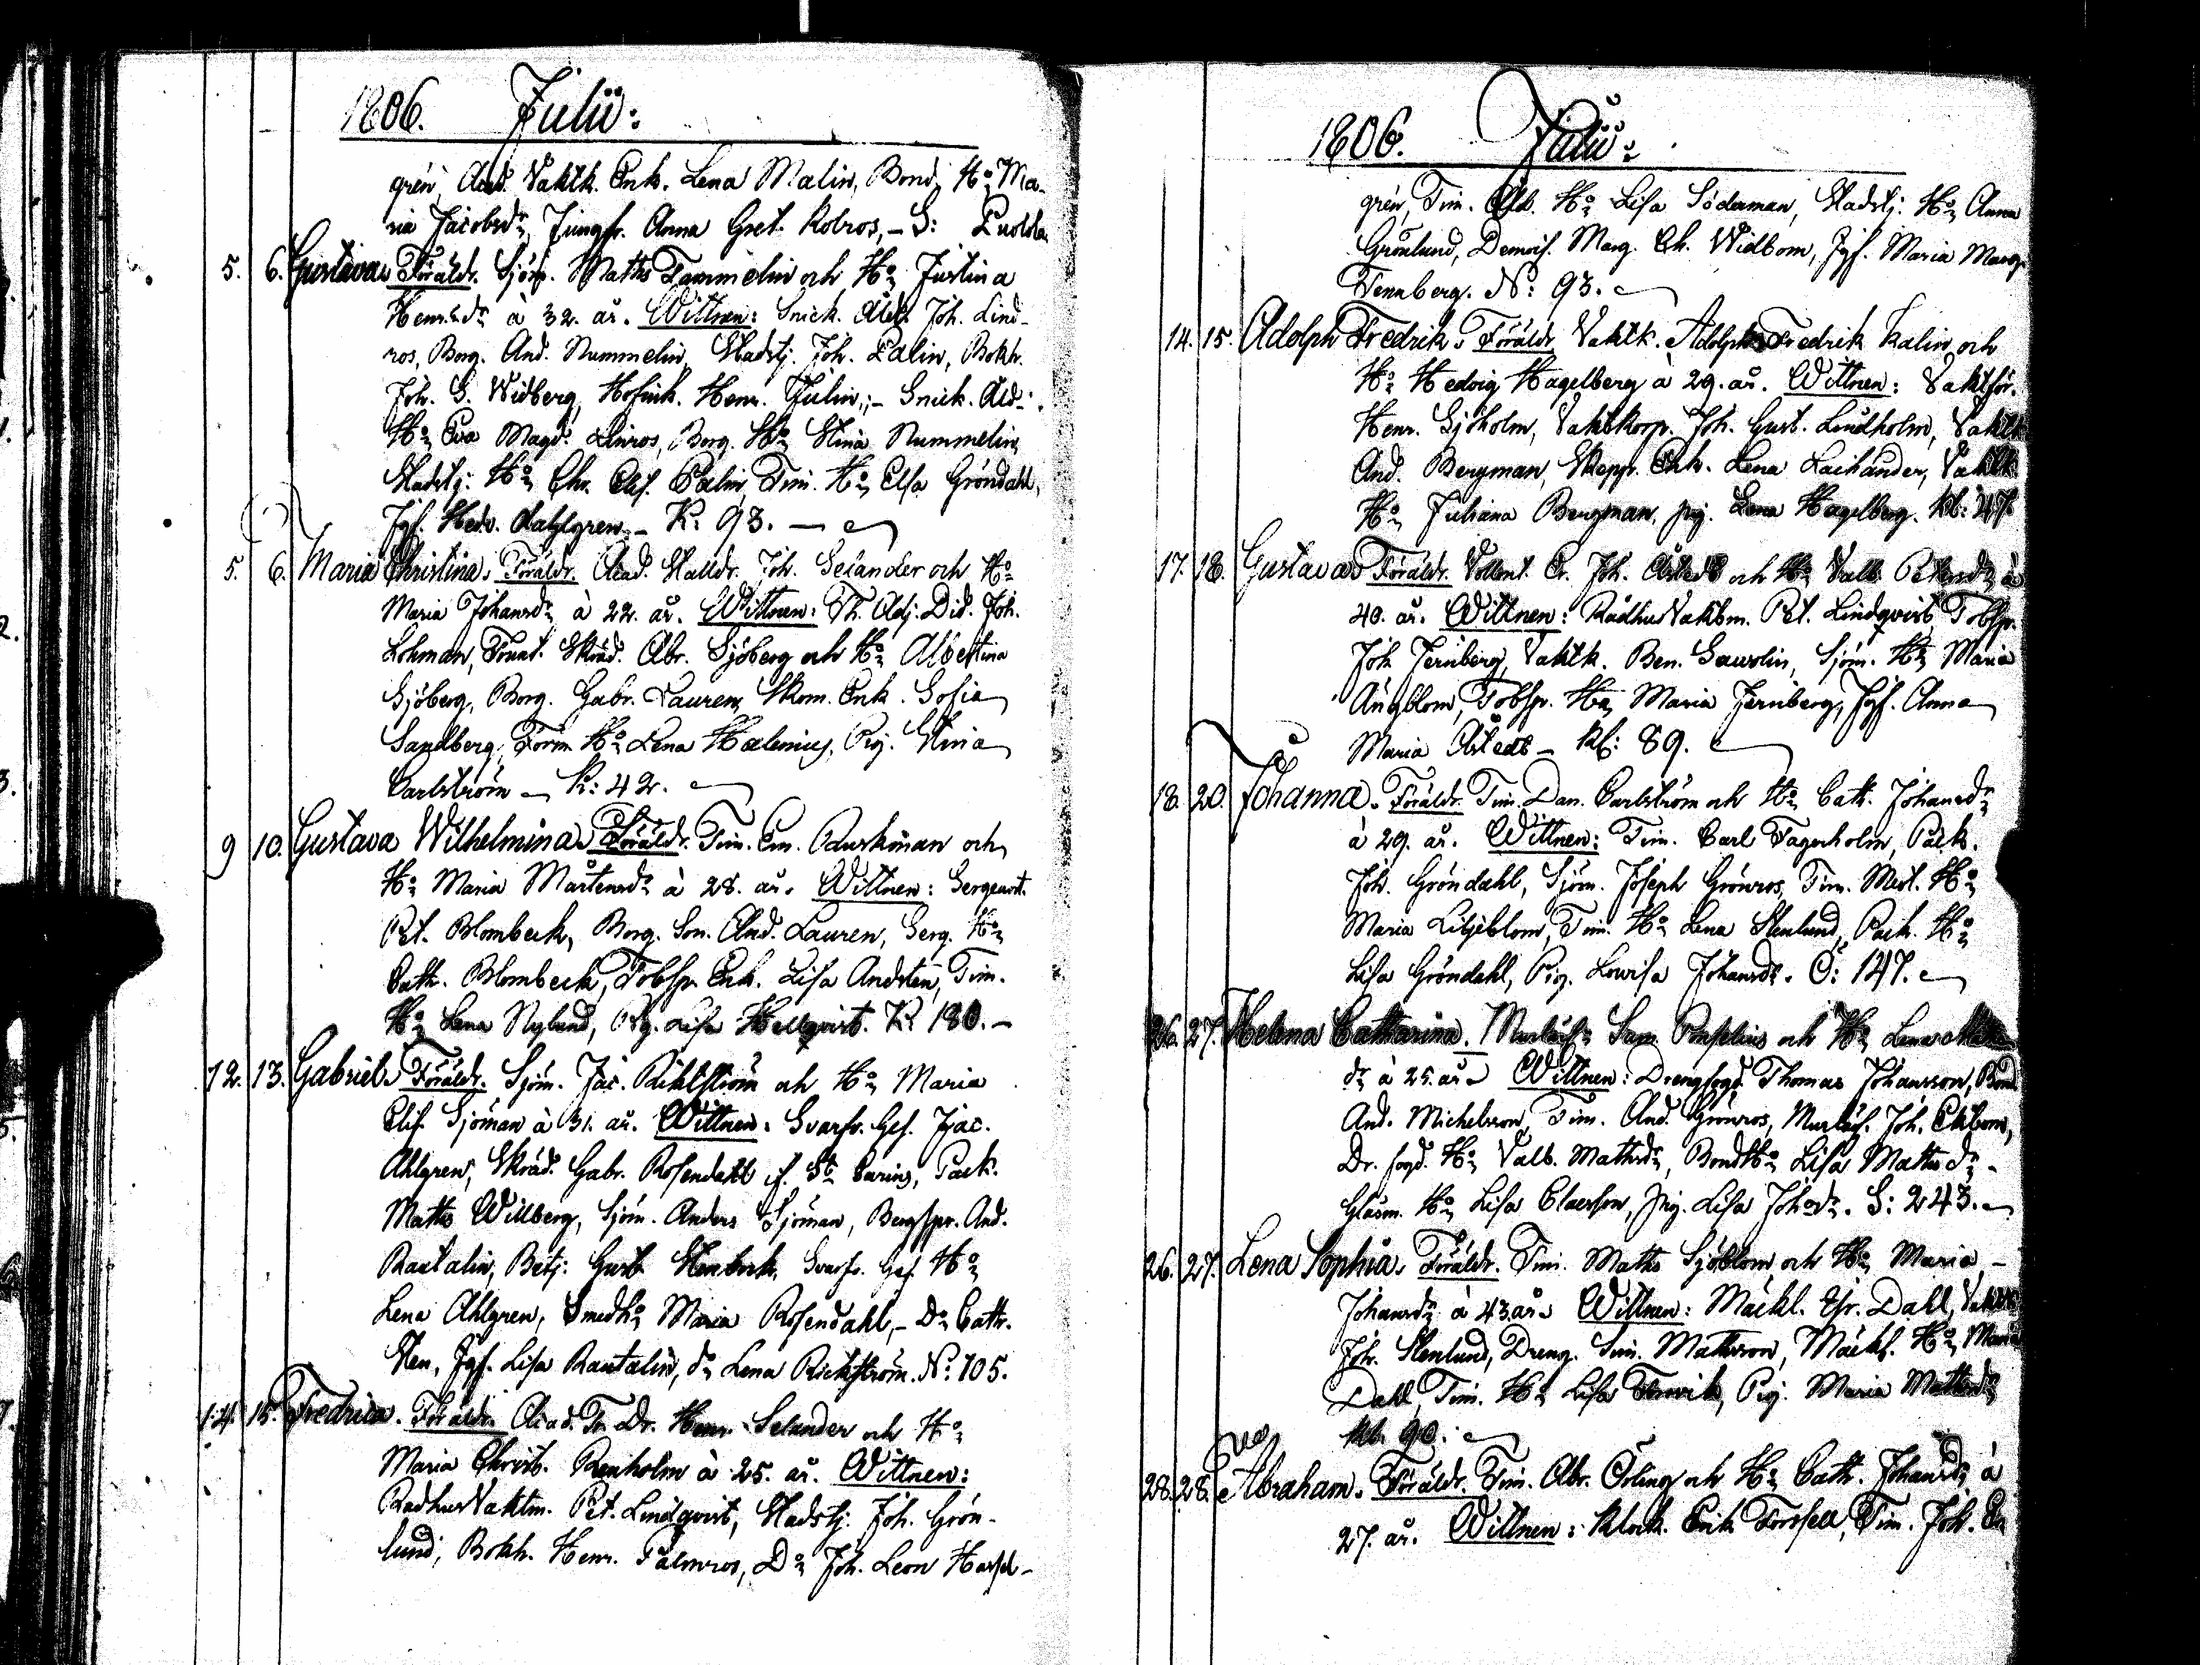 1806. Julii:
grén, Acad. Vaktk. Enk. Lena Malin, Bond. Hu Ma-
ria Jacobsdr, Jungfr. Anna Gret. Kolros, – S:
5. 6. Gustava. Föräldr. Sjöm. Matts Tammelin och Hu Justina
Henr.dr à 32. år. Wittnen: Snick. Åld. Joh. Lind-
ros, Borg. And. Nummelin, Stadstj. Joh. Palin, Bokh.
Joh. G. Widberg, Henr. Julin; – Snick. Åld-
Hu Eva Magd. Linros, Borg. Hu Stina Nummelin,
Stadstj: Hu Chr. Elis. Palin, Tim. Hu Elsa Gröndahl,
Jgf. Hedv. Dahlgren – K: 93. –
5. 6. Maria Christina. Föräldr. Acad. Stalldr. Joh. Selander och Hu
Maria Johansdr à 22. år. Wittnen: Th. Adj. Did. Joh.
Lohman, Skräd. Abr. Sjöberg och Hu Albertina
Sjöberg, Borg. Gabr. Lauren, Skom. Enk. Sofia
Sandberg, Form Hu Lena Helenius, Pig. Stina
Carlström – K: 42.
9 10. Gustava Wilhelmina. Föräldr. Tim. Em. och
Hu Maria Mårtensdr à 28. år. Wittnen: Sergeant.
Pet. Blombeck, Borg. Son. And. Lauren, Serg. Hu
Cath. Blombeck, Tobsp. Enk. Lisa Andsten, Tim.
Hu Lena Nylund, Pig. Lisa Hellqvist. K: 180. –
12. 13. Gabriel. Föräldr. Sjöm. Jac. Rikström och Hu Maria
Elis. Sjöman à 31. år. Wittnen: Svarfv. Ges. Isac.
Ahlgren, Skräd. Gabr. Rosendahl f. St Carins, Pack.
Matts Willberg, Sjöm. Anders Sjöman, And.
Rautalin, Betj: Gust. Stenbock, Svarfv. Ges. Hu
Lena Ahlgren, Smedhu Maria Rosendahl, – Do Cath.
Sten, Jgf. Lisa Rautalin, do Lena Rickström. N: 105.
14. 15. Fredrica. Föräldr. Acad. Dr. Henr. Selander och Hu
Maria Christ. Renholm à 25. år. Wittnen:
RådhusVaktm. Pet. Lindqvist, Stadstj. Joh. Grön-
lund, Bokh. Henr. Palmros, Do Joh. Leon Hassel-
1806. Julii:
grén, Tim. Åld. Hu Lisa Söderman, Stadstj: Hu Anna
Grönlund, Demois. Marg. Ch. Widbom, Jgf. Maria Marg.
Tennberg. N: 93.
14. 15. Adolph Fredrik. Föräldr. Vaktk. Adolph Fredrik Kalin och
Hu Hedvig Hagelberg à 29. år. Wittnen: Vaktför.
Henr. Sjöholm, Vaktkorp. Joh. Gust. Lindholm, Vaktk
And. Bergman, Skepp. Enk. Lena Laihander, Vaktk
Hu Juliana Bergman, pig. Lena Hagelberg. Kl: 47.
17. 18. Gustava. Föräldr. Joh. Åstedt och Hu Valb. Petersdr à
40. år. Wittnen: RådhusVaktm. Pet. Lindqvist, Tobsp.
Joh. Jernberg, Vaktk. Ben. Gauslin, Sjöm. Hu Maria
Ångblom, Tobsp. Hu Maria Jernberg, Jgf. Anna
Maria Åstedt – Kl: 89.
18. 20. Johanna. Föräldr. Tim. Dan. Carlström och Hu Cath. Johansdr
à 29. år. Wittnen: Tim. Carl Fagerholm, Pack.
Joh. Gröndahl, Sjöm. Joseph Grönros, Tim. Mest. Hu
Maria Liljeblom, Tim. Hu Lena Stenlund, Pack. Hu
Lisa Gröndahl, Pig. Lovisa Johansdr. C: 147.
26. 27. Helena Catharina. Murläsn Sam. och Hu Lena
dr à 25. år. Wittnen: Drengfogd. Thomas Johansson, Bond
And. Michelsson, Tim. And. Grönros, Murläs. Joh. Ekbom,
Dr. fogd. Hu Valb. Mattsdr, BondHu Lisa Mattsdr –
Glasm. Hu Lisa Claesson, Pig. Lisa Johsdr. S: 243.
26. 27. Lena Sophia. Föräldr. Tim. Matts Sjöblom och Hu Maria –
Johansdr à 43 år. Wittnen: Mäckl. Gr. Dahl, Vaktk
Joh. Stenlund, Dreng. Sim. Mattsson, Mäckl. Hu Maria
Dahl, Tim. Hu Lisa Pig. Maria Mattsdr
Kl. 90.
28. 28. Abraham. Föräldr. Tim. Abr. Örling och Hu Cath. Johansdr à
27. år. Wittnen: Klock. Erik Forssell, Tim. Joh.